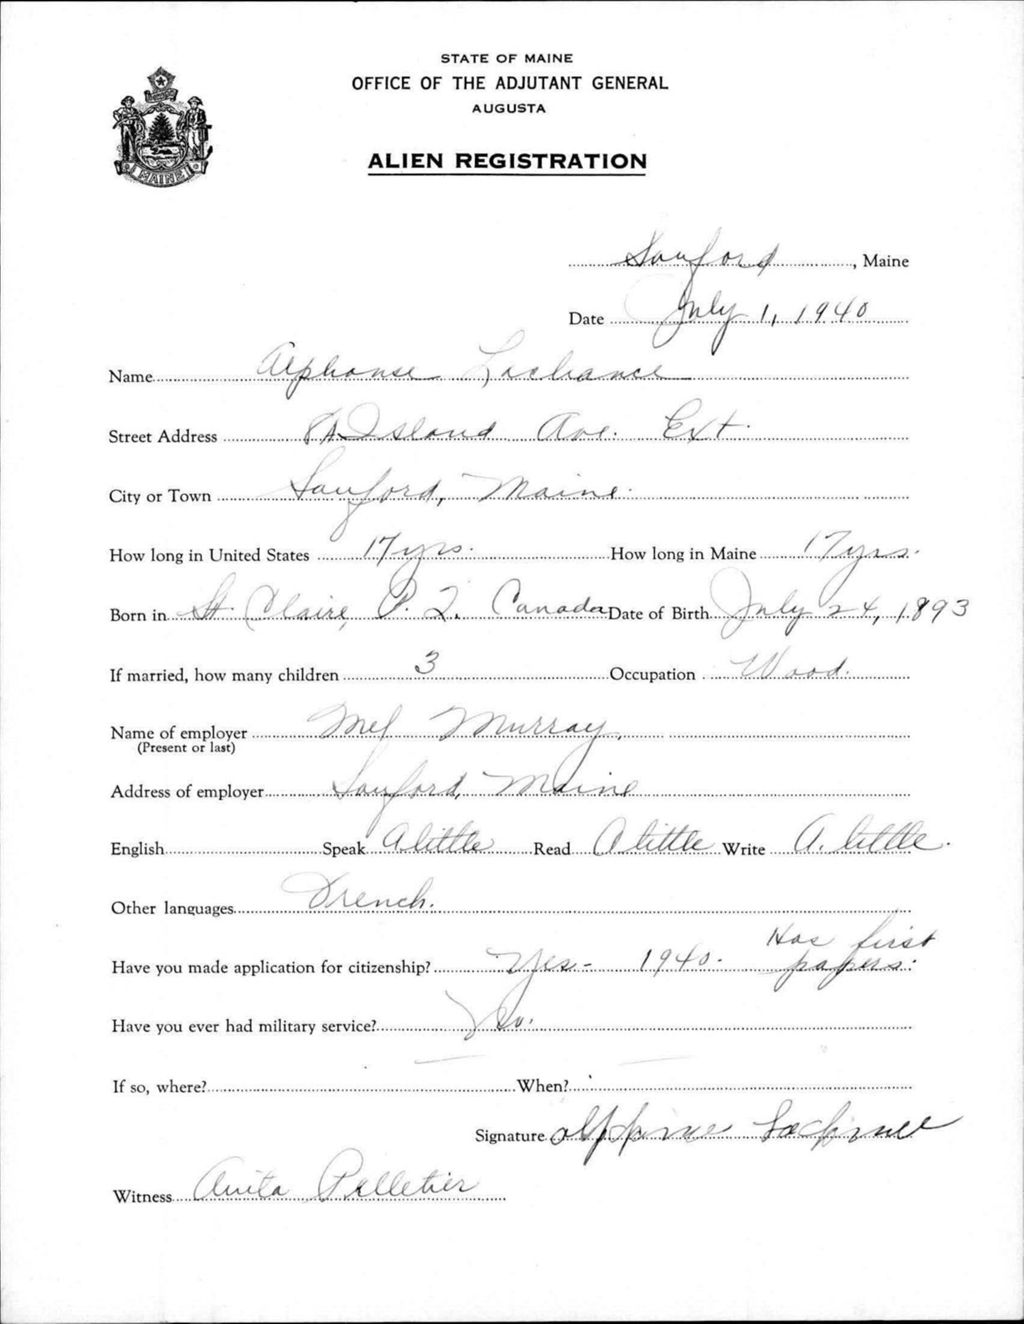 STATE OF MAINE
OFFICE OF THE ADJUTANT GENERAL
AUGUSTA
ALIEN REGISTRATION
MAINE
Sanford, Maine
Date July 1, 1940
Name Alphonse Lachance
Street Address 8A Island Ave. Ext.
City or Town Sanford, Maine.
How long in United States 17 yrs. How long in Maine 17 yrs.
Born in St. Claire, P. Q. Canada Date of Birth July 24, 1893
If married, how many children 3 Occupation Wood.
Name of employer Mel Murray.
(Present or last)
Address of employer Sanford, Maine
English Speak A little Read A little Write A. little.
Other languages French.
Has first
Have you made application for citizenship? Yes - 1940. papers.
Have you ever had military service? No.
If so, where? — When? —
Signature Alphonse Lachance
Witness Anita Pelletier